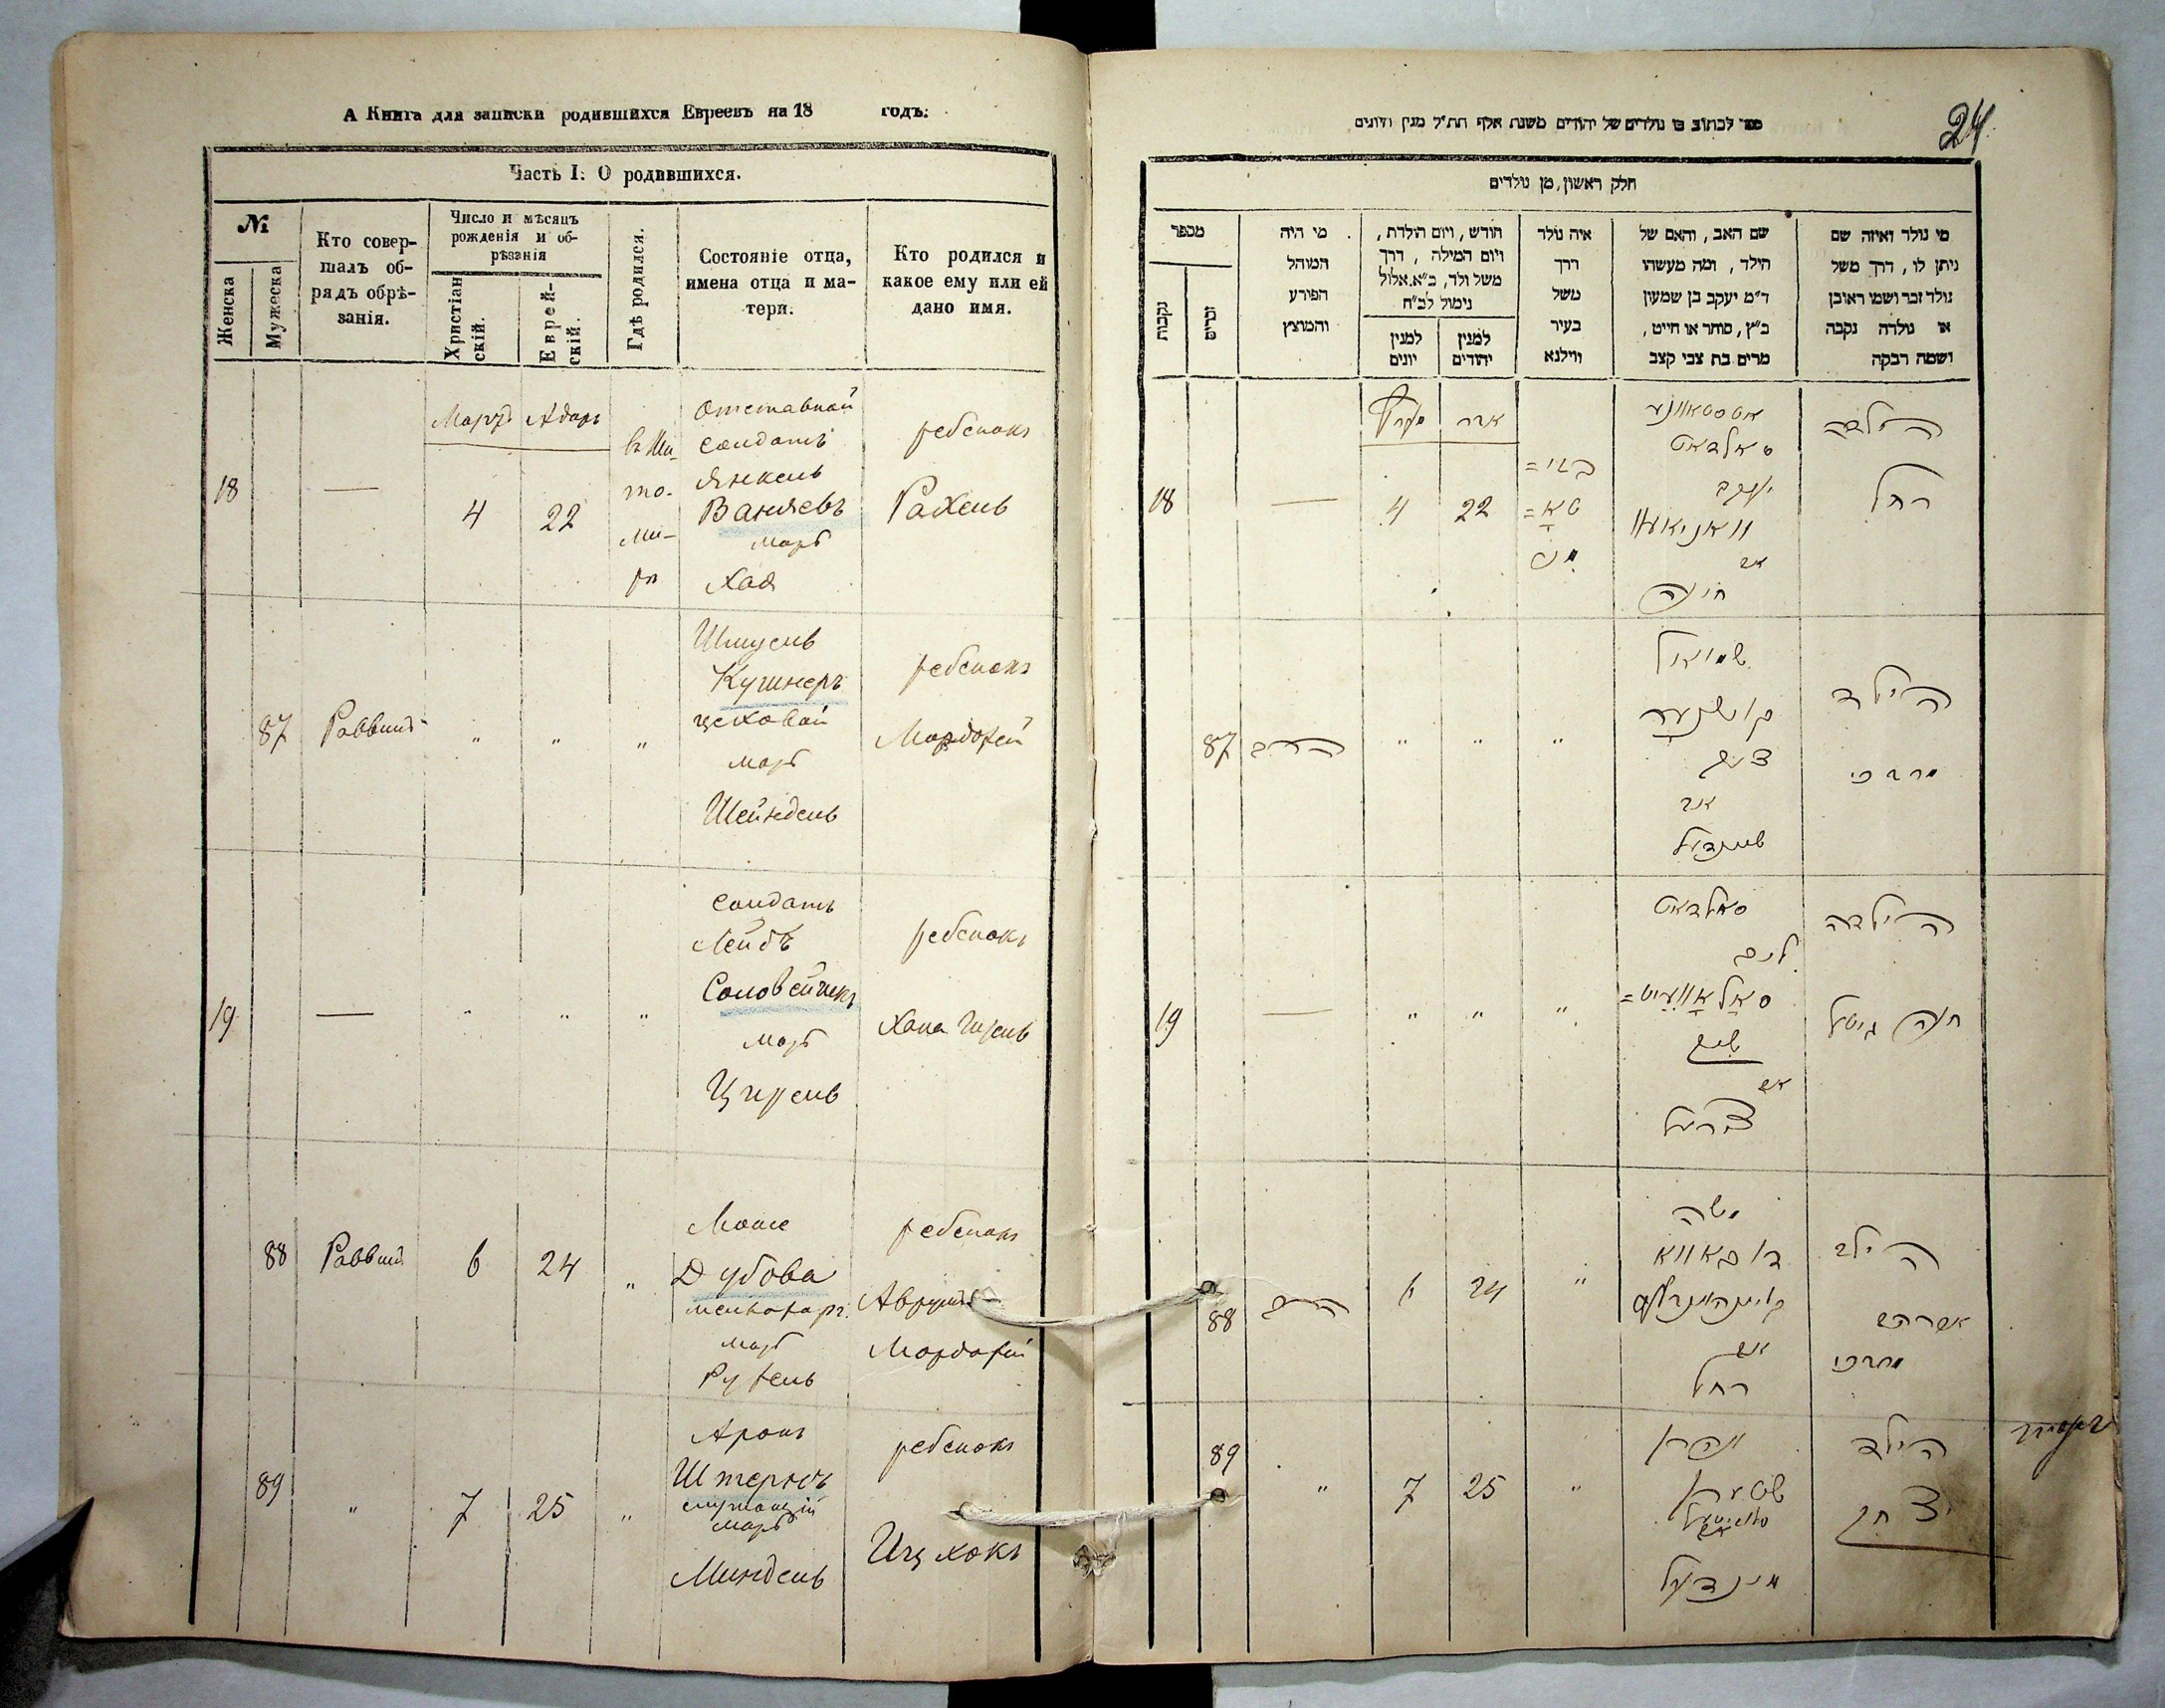 А Книга для записки родившихся Евреевъ на 18 годъ.
Часть I. О родившихся.
№
Женска
Мужеска
Кто совер-
шалъ об-
рядъ обрѣ-
занія.
Число и мѣсяцъ
рожденія и об-
рѣзанія
Христіан
скій.
Еврей-
скій.
Гдѣ родился.
Состояніе отца,
имена отца и ма-
тери.
Кто родился и
какое ему или ей
дано имя.
18
—
Мартъ
4
Адаръ
22
въ Жи-
то-
ми-
рѣ
Отставной
солдатъ
Янкель
Ваняевъ
мать
Хая
ребенокъ
Рахель
87
Раввинъ
"
"
"
Шмуель
Кушнеръ
цеховой
мать
Шейндель
ребенокъ
Мордохей
19
—
"
"
"
солдатъ
Лейбъ
Соловейчикъ
мать
Цирель
ребенокъ
Хана
88
Раввинъ
6
24
"
Моше
Дубова
мать
Рухель
ребенокъ
Аврумъ
Мордохей
89
"
7
25
"
Аронъ
Штернъ
мать
Миндель
ребенокъ
Ицхокъ
24
ספר לכתוב בו נולדים של יהודים משנת אלף תת״ל מנין יוונים
חלק ראשון, מן נולדים
מי נולד ואיזה שם
ניתן לו, דרך משל
נולד זכר ושמו ראובן
או נולדה נקבה
ושמה רבקה
שם האב, והאם של
הילד, ומה מעשהו
ד״מ יעקב בן שמעון
כ״ץ, סוחר או חייט,
מרים בת צבי קצב
איה נולד
דרך
משל
בעיר
ווילנא
חודש, ויום הולדת,
ויום המילה, דרך
משל ולד, כ״א אלול
נימול לכ״ח
למנין
יהודים
למנין
יונים
מי היה
המוהל
הפורע
והמוצץ
מספר
זכרים
נקבות
הילדה
רחל
אטסטאוונע
סאלדאט
יעקב
וואניאעוו
אם
חיה
אדר
22
מערץ
4
—
18
הילד
מרדכי
שמואל
קושנער
צעך
אם
שיינדעל
"
"
"
הרב
87
הילדה
חנה גיטל
סאלדאט
לייב
סאלאווייט=
שיק
אם
צירעל
"
"
"
—
19
הילד
אברהם
מרדכי
משה
דובאווא
אם
רחל
"
24
6
הרב
88
הילד
יצחק
אהרן
שטערן
אם
מינדעל
"
25
7
"
89